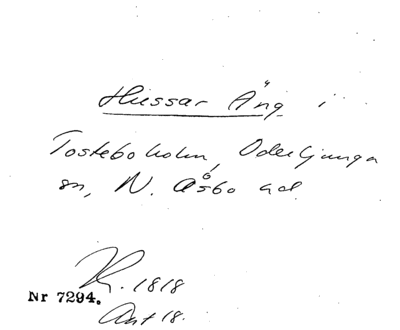 Hussar Äng i
Tosteboholm, Oderljunga
sn, N. Åsbo hd.
R. 1818
Nr 7294.
Ant 18.